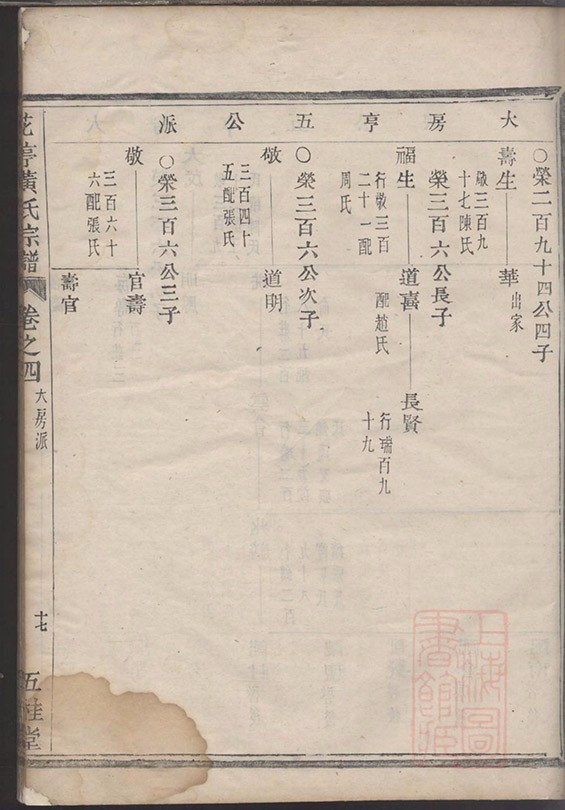 大房亨五公派
○榮二百九十四公四子
壽生 華 出家
敬三百九
十七陳氏
榮三百六公長子
福生 道喜 長賢
行敬三百
二十一配
周氏
配趙氏
行瑞百九
十九
○榮三百六公次子
敬 道明
三百四十
五配張氏
○榮三百六公三子
敬 官壽
三百六十
六配張氏
壽官
花亭黃氏宗譜 卷之四 大房派 十七 五桂堂
上海圖書館藏